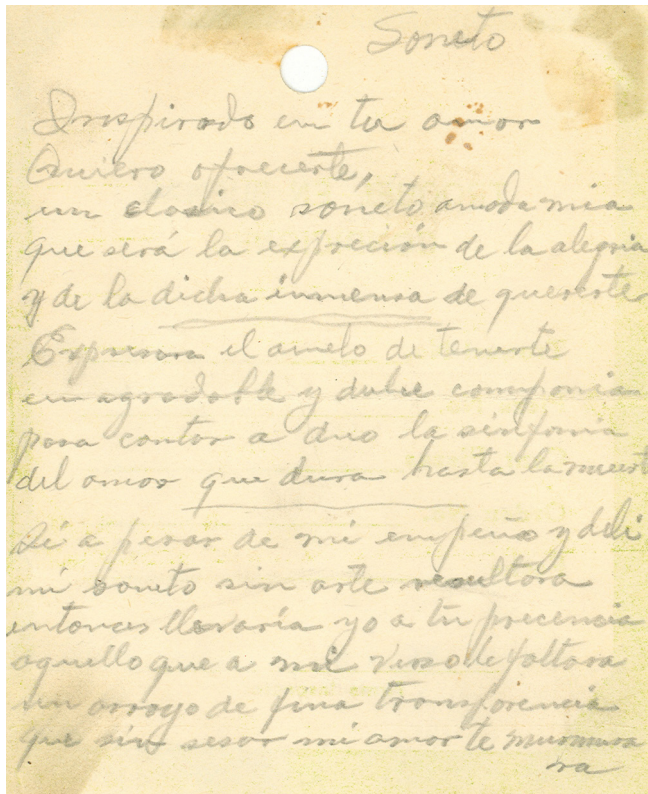 Soneto
Inspirado en tu amor
Quiero ofrecerte,
un clasico soneto amada mia
que será la expreción de la alegria
y de la dicha inmensa de quererte
Expresara el anelo de tenerte
en agradable y dulce compania
para cantar a duo la sinfonia
del amor que dura hasta la muert
Si a pesar de mi empeño y deli
mi soneto sin arte resultara
entonces llevaría yo a tu precencia
aquello que a mi verso le faltara
un arroyo de fina transparencia
que sin sesar mi amor te murmura
ra